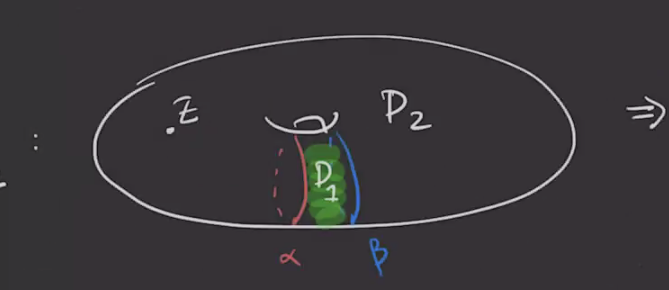 : .z D₂ ⇒
D₁
α β